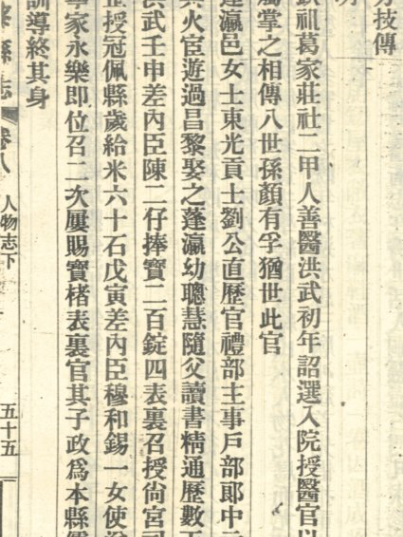 方技傳
明
釴祖葛家莊社二甲人善醫洪武初年詔選入院授醫官以
屬掌之相傳八世孫顏有孚猶世此官
蓬瀛邑女士東光貢士劉公直歷官禮部主事戶部郎中
兵火宦遊過昌黎娶之蓬瀛幼聰慧隨父讀書精通歷數
洪武壬申差內臣陳二仔捧寶二百錠四表裏召授尚宮
授冠佩縣歲給米六十石戊寅差內臣穆和錫一女使
家永樂即位召二次屢賜寶楮表裏官其子政爲本縣儒
訓導終其身
黎縣志 卷八 人物志下 五十五